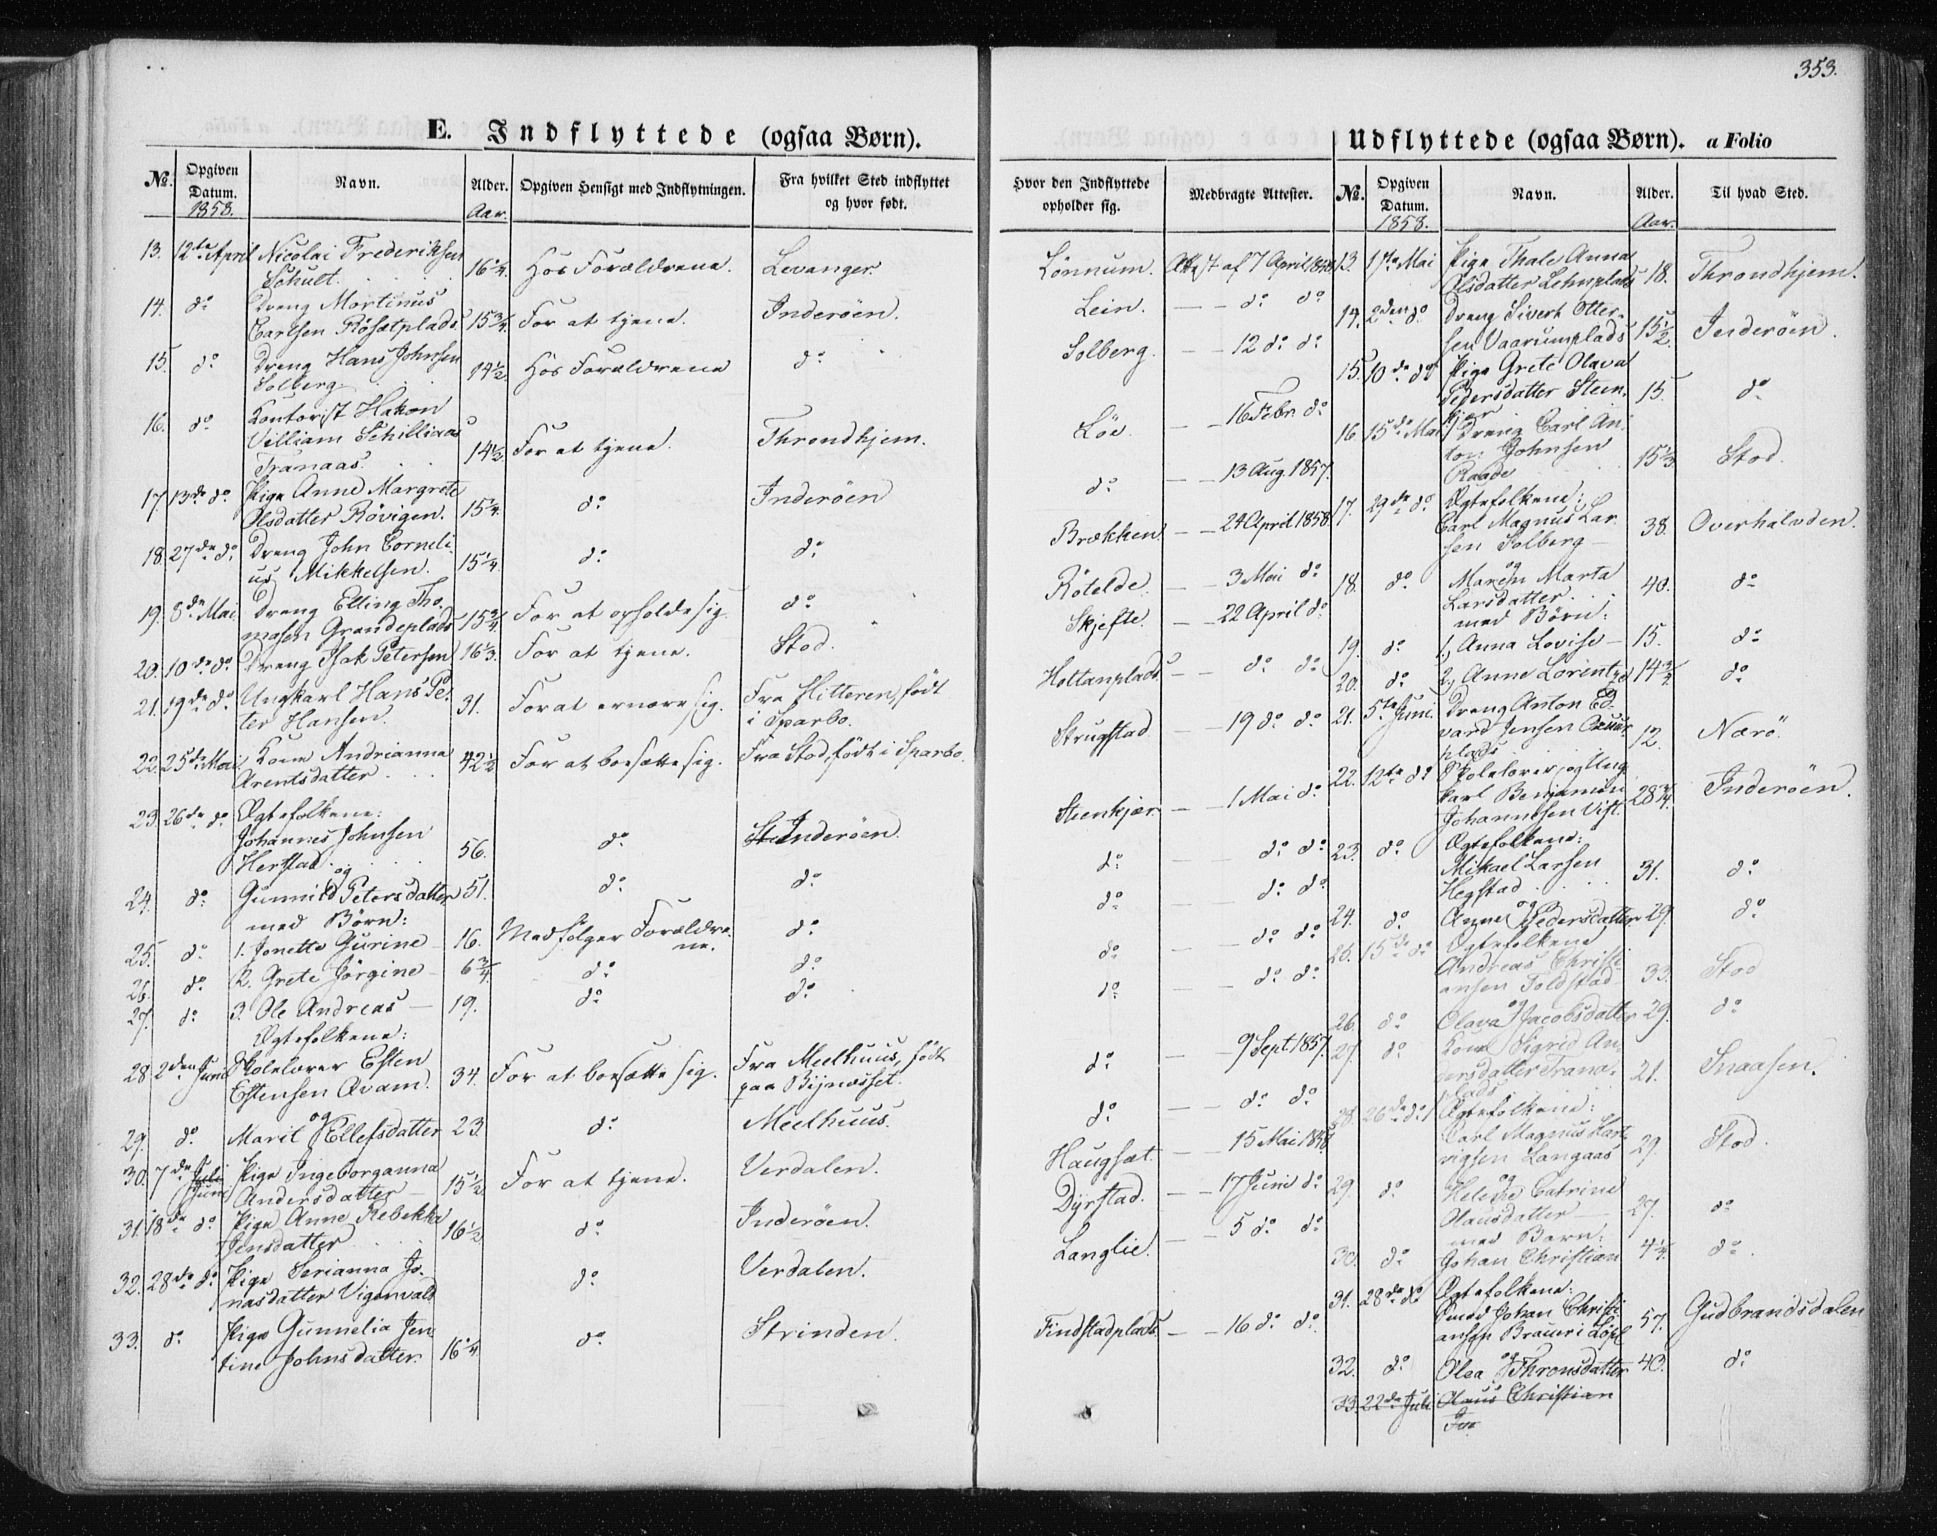 353.
E. Indflyttede (ogsaa Børn).
№. Opgiven Datum. 1858. Navn. Alder. Aar. Opgiven Hensigt med Indflytningen. Fra hvilket Sted indflyttet og hvor født.
13. 12te April Nicolai Frederiksen
Schult. 16¼. Hos Forældrene. Levanger.
14. do Dreng Martinus
Carlsen Røsetplads. 15¾. For at tjene. Inderöen.
15. do Dreng Hans Johnsen
Solberg. 14½. Hos Forældrene do
16. do Kontorist Hakon
Villiam Schilliaas
Tranaas. 14½. For at tjene. Throndhjem.
17. 13de do Pige Anne Margrete
Olsdatter Rövigen. 15¼. do Inderöen
18. 27de do Dreng John Corneli-
us Mikkelsen. 15¼. do do
19. 8de Mai Dreng Elling Tho-
masen Grandeplads 15¾. For at opholde sig. do
20. 10de do Dreng Isak Petersen 16⅓. For at tjene. Stod.
21. 19de do Ungkarl Hans Pe-
ter Hansen. 31. For at ernære sig. Fra Hitteren, født
i Sparbo.
22. 25de Mai Kone Andrianna
Arentsdatter. 42½ For at bosætte sig. Fra Stod, født i Sparbo.
23. 26de do Ægtefolkene:
Johannes Johnsen
Herstad og 56. do Inderöen.
24. do Gunnild Petersdatter 51. do do
med Børn:
25. do 1. Jonette Gurine 16. Medfølger Forældre-
ne. do
26. do 2. Grete Jörgine 6¾. do do
27. do 3. Ole Andreas 19. do do
Ægtefolkene:
28. 2den Juni Skolelærer Esten
Estensen Qvam. 34. For at bosætte sig. Fra Meelhuus, født
paa Bijnæsset.
og
29. do Marit Ellefsdatter 23. do Meelhuus.
30. 7de Juli Juni Pige Ingeborganna
Andersdatter 15½ For at tjene. Verdalen.
31. 18de do Pige Anne Rebekka
Jensdatter 16½ do Inderöen.
32. 28de do Pige Serianna Jo-
nasdatter Vigenvald do Verdalen.
33. do Pige Gunnelia Jen-
tine Johnsdatter. 16¼ do Strinden.
Hvor den Indflyttede opholder sig. Medbragte Attester.
Lönnum. Attest af 7 April 1858.
Lein. — do do
Solberg. — 12 do do
Löe. — 16 Febr. do
do — 13 Aug. 1857.
Brækken. — 24 April 1858.
Rötelde. — 3 Mai do
Skjefte. — 22 April do
Holtanplads. — do do
Strugstad. — 19 do do
Steenkjær. — 1 Mai do
do — do do
do — do do
do — do do
do — do do
do — 9 Sept. 1857.
do — do do
Haugsæt. — 15 Mai 1858.
Dyrstad. — 17 Juni do
Langlie. — 5 do do
Findstadplads. — 16 do do
Udflyttede (ogsaa Børn). a Folio
№. Opgiven Datum. 1858. Navn. Alder. Aar. Til hvad Sted.
13. 1ste Mai Pige Thale Anna
Olsdatter Lehnplads 18. Throndhjem.
14. 2den do Dreng Sivert Otter-
sen Vaarumplads 15½. Inderöen.
15. 10de do Pige Grete Olava
Pedersdatter Steen-
kjær 15. do
16. 15de Mai Dreng Carl An-
ton Johnsen
Raade 15⅓ Stod.
17. 29de do Ægtefolkene:
Carl Magnus Lar-
sen Solberg 38. Overhalvden.
og
18. do Maren Marta
Larsdatter 40. do
med Børn:
19. do 1, Anna Lovise 15. do
20. do 2, Anne Lorentze 14¾ do
21. 5te Juni. Dreng Anton Ed-
vard Jensen
plads 12. Nærö.
22. 12te do Skolelærer og Ung-
karl Benjamin
Johannesen Vist. 28¾. Inderöen.
23. do Ægtefolkene:
Mikael Larsen
Hegstad 31. do
og
24. do Anne Pedersdatter 29. do
25. 15de do Ægtefolkene
Andreas Christi-
ansen Foldstad 33. Stod
og
26. do Olava Jacobsdatter 29. do
27. do Kone Sigrid An-
dersdatter Trana-
plads 21. Snaasen.
28. 26de do Ægtefolkene:
Carl Magnus Hart-
vigsen Langaas 29. Stod.
og
29. do Helene Catrine
Olausdatter 27. do
med Barn:
30. do Johan Christian 4¼. do
31. 28de do Ægtefolkene:
Smed Johan Christi-
ansen Braueri Löse 57. Gudbrandsdalen
og
32. do Olea Thronsdatter 40. do
33. 22de Juli Olaus Christian